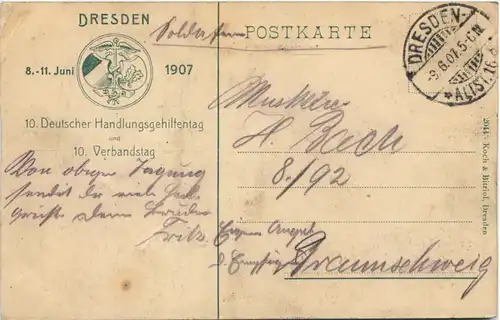 DRESDEN
8.-11. Juni 1907
10. Deutscher Handlungsgehilfentag
und
10. Verbandstag
Von obiger Tagung
sendet dir viele
Dein Bruder
Fritz.
POSTKARTE
DRESDEN-
-9.6.07.5-6N.
*ALTST.16
Musketier
H.
8./92
Braunschweig
2044 Koch & Bitriol, Dresden